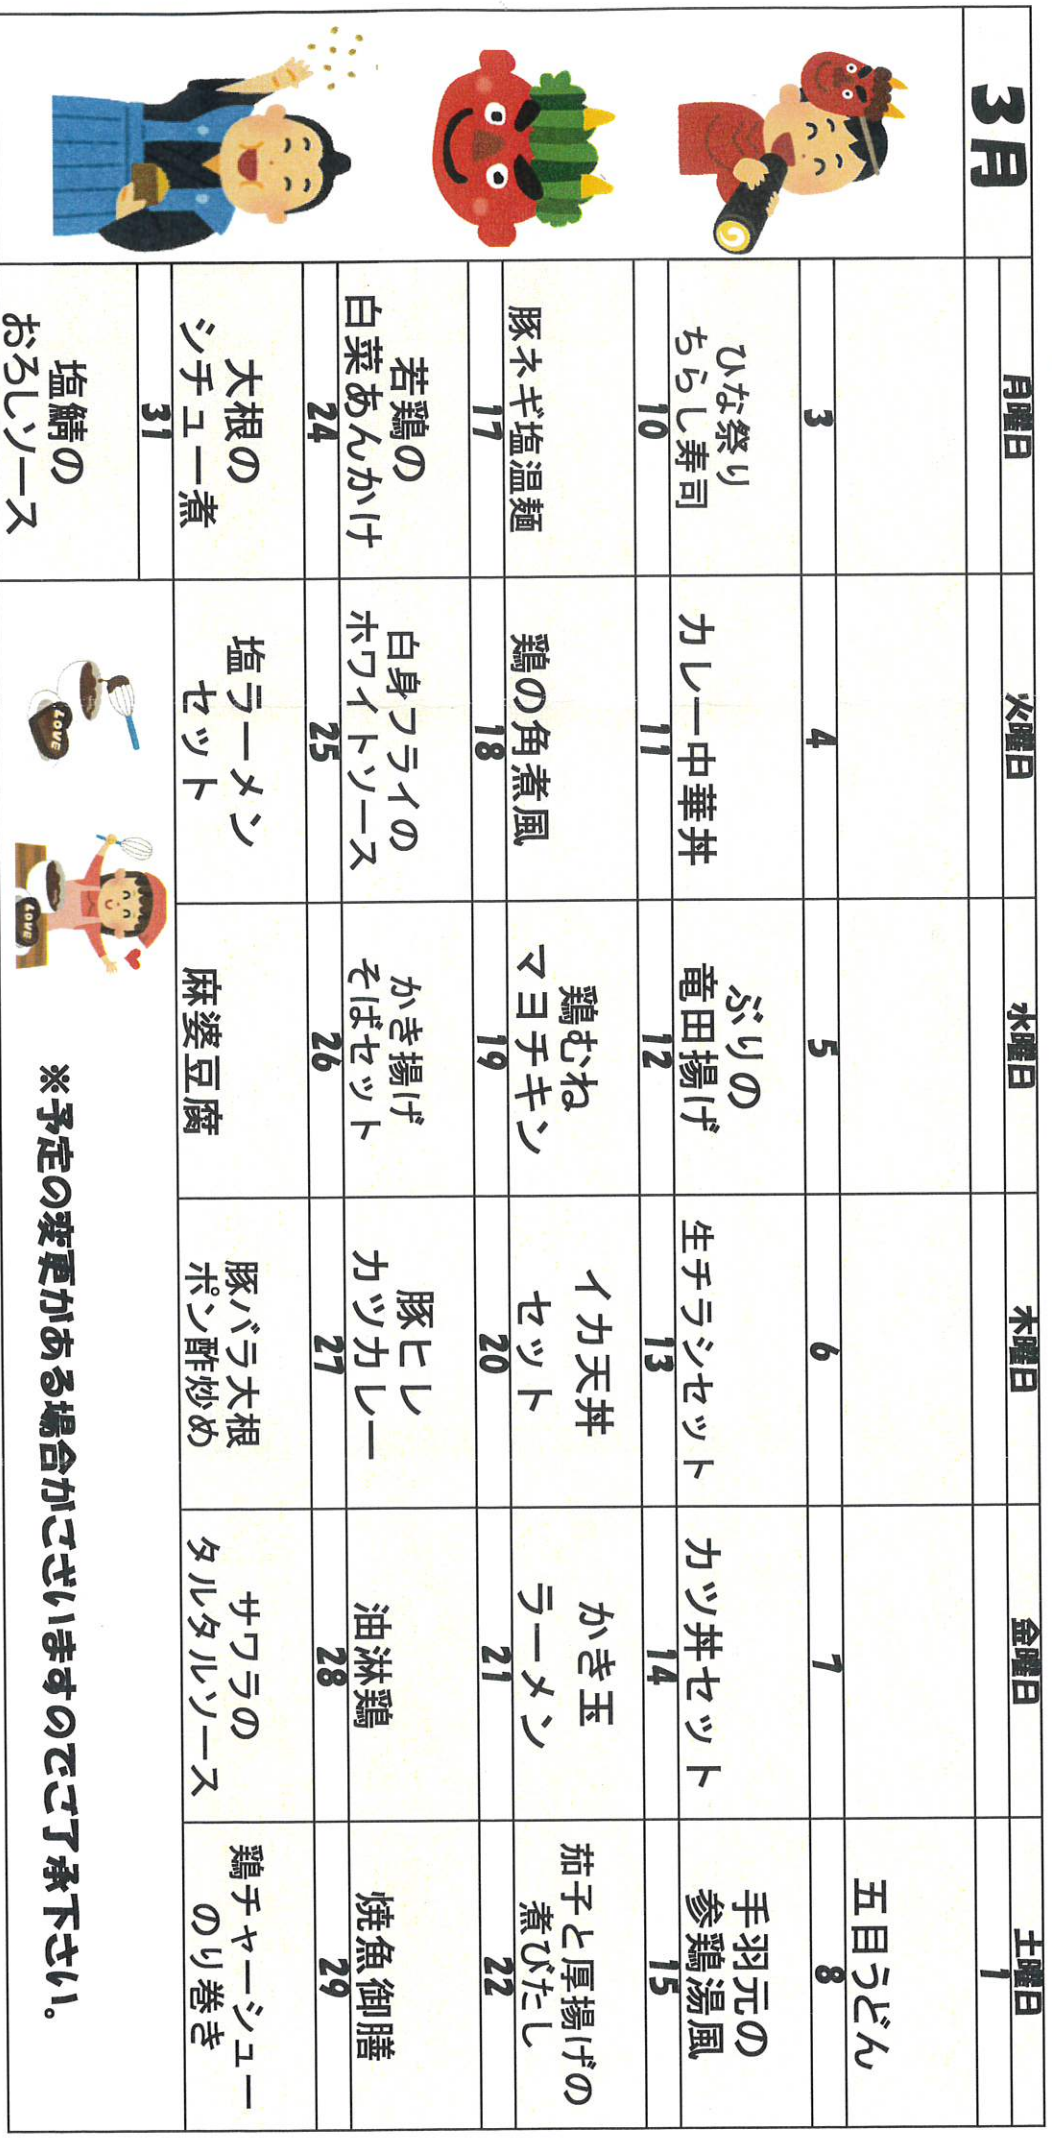 3月
月曜日 火曜日 水曜日 木曜日 金曜日 土曜日
1
五目うどん
3 4 5 6 7 8
ひな祭り
ちらし寿司
カレー中華丼
ぶりの
竜田揚げ
生チラシセット
カツ丼セット
手羽元の
参鶏湯風
10 11 12 13 14 15
豚ネギ塩温麺
鶏の角煮風
鶏むね
マヨチキン
イカ天丼
セット
かき玉
ラーメン
茄子と厚揚げの
煮びたし
17 18 19 20 21 22
若鶏の
白菜あんかけ
白身フライの
ホワイトソース
かき揚げ
そばセット
豚ヒレ
カツカレー
油淋鶏
焼魚御膳
24 25 26 27 28 29
大根の
シチュー煮
塩ラーメン
セット
麻婆豆腐
豚バラ大根
ポン酢炒め
サワラの
タルタルソース
鶏チャーシュー
のり巻き
31
塩鯖の
おろしソース
LOVE
LOVE
※予定の変更がある場合がございますのでご了承下さい。